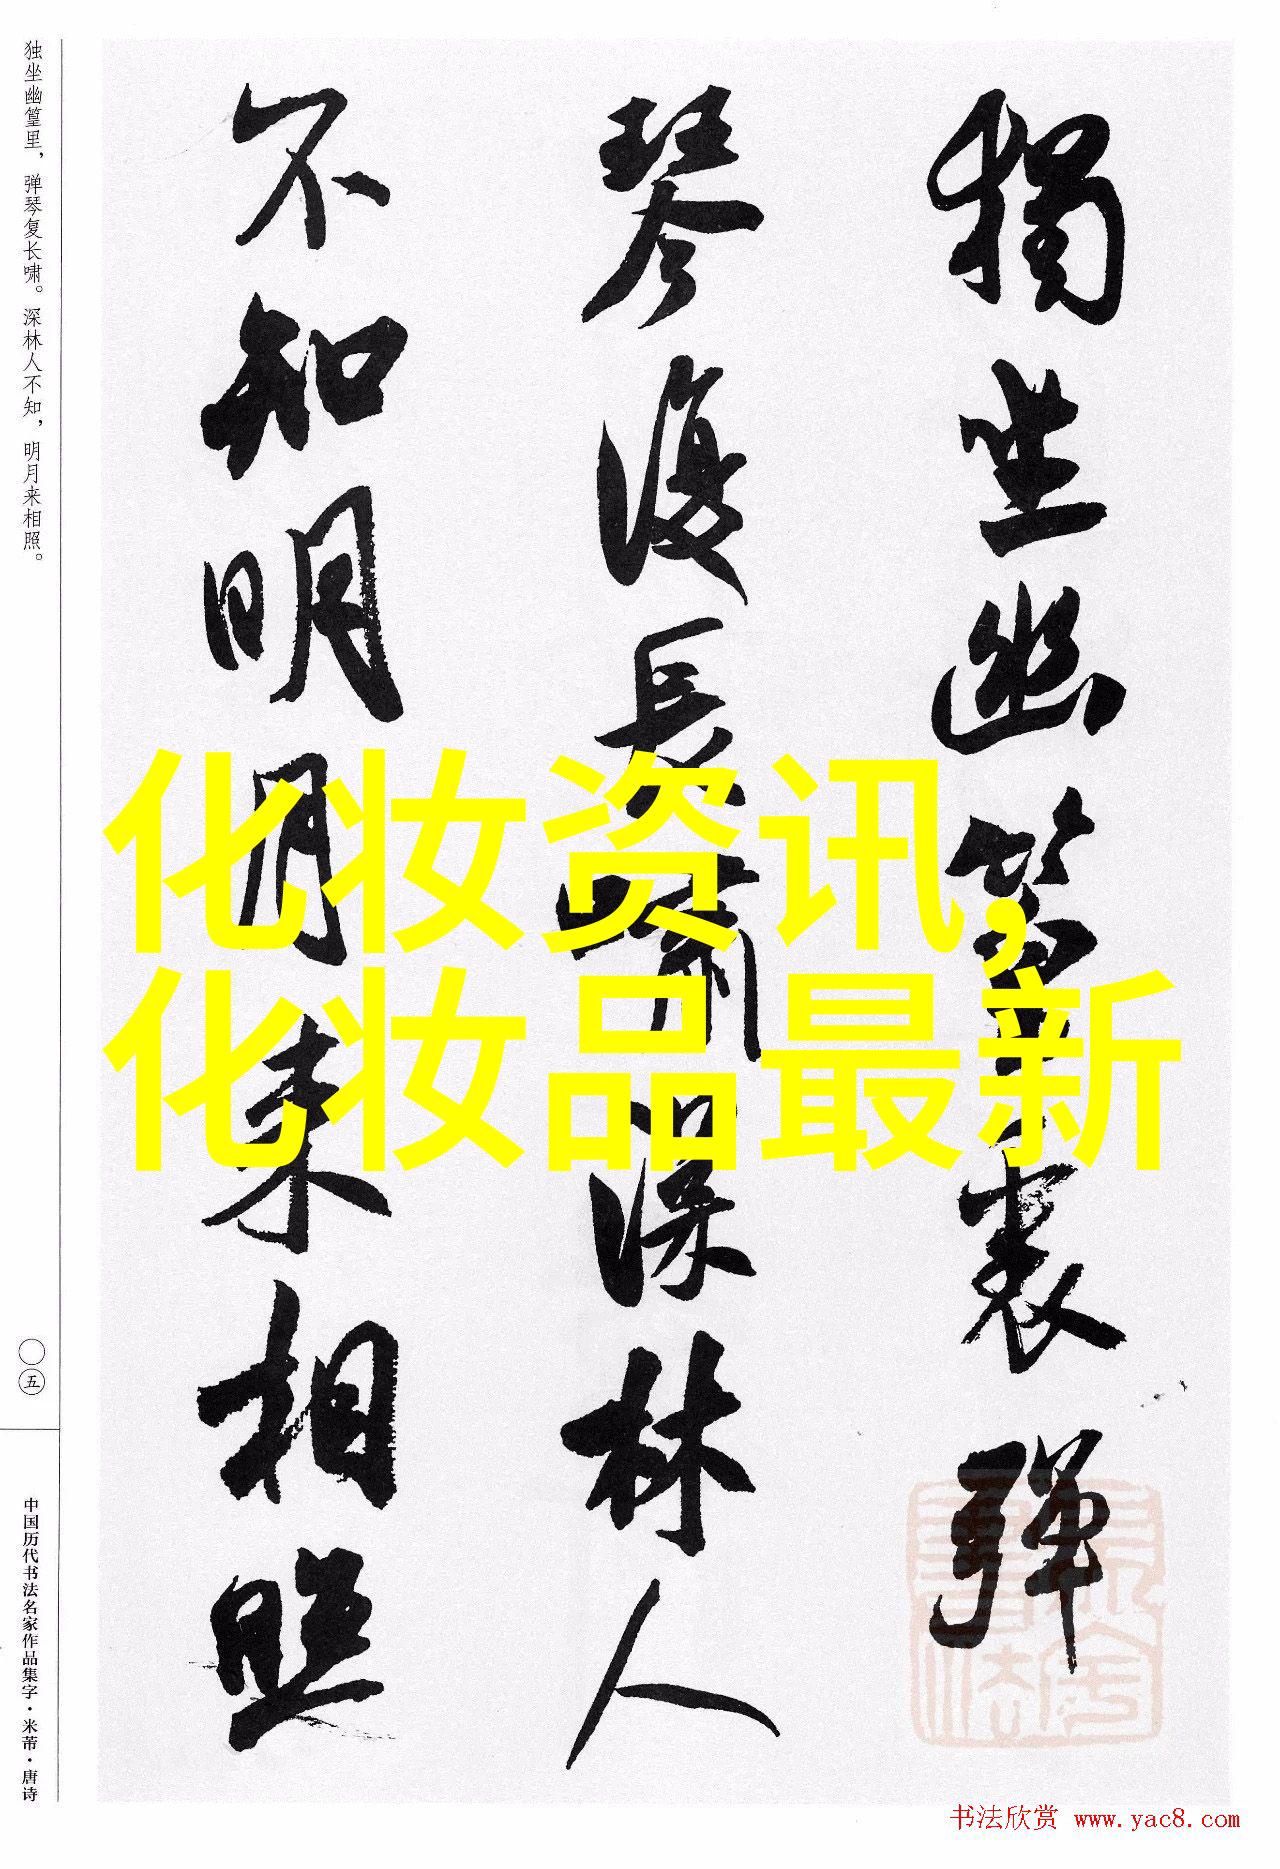 獨坐幽篁裏彈
琴復長嘯深林人
不知明月来相照
独坐幽篁里，弹琴复长啸。深林人不知，明月来相照。
〇五
中国历代书法名家作品集字·米芾·唐诗
化妆资讯，
化妆品最新
书法欣赏 www.yac8.com